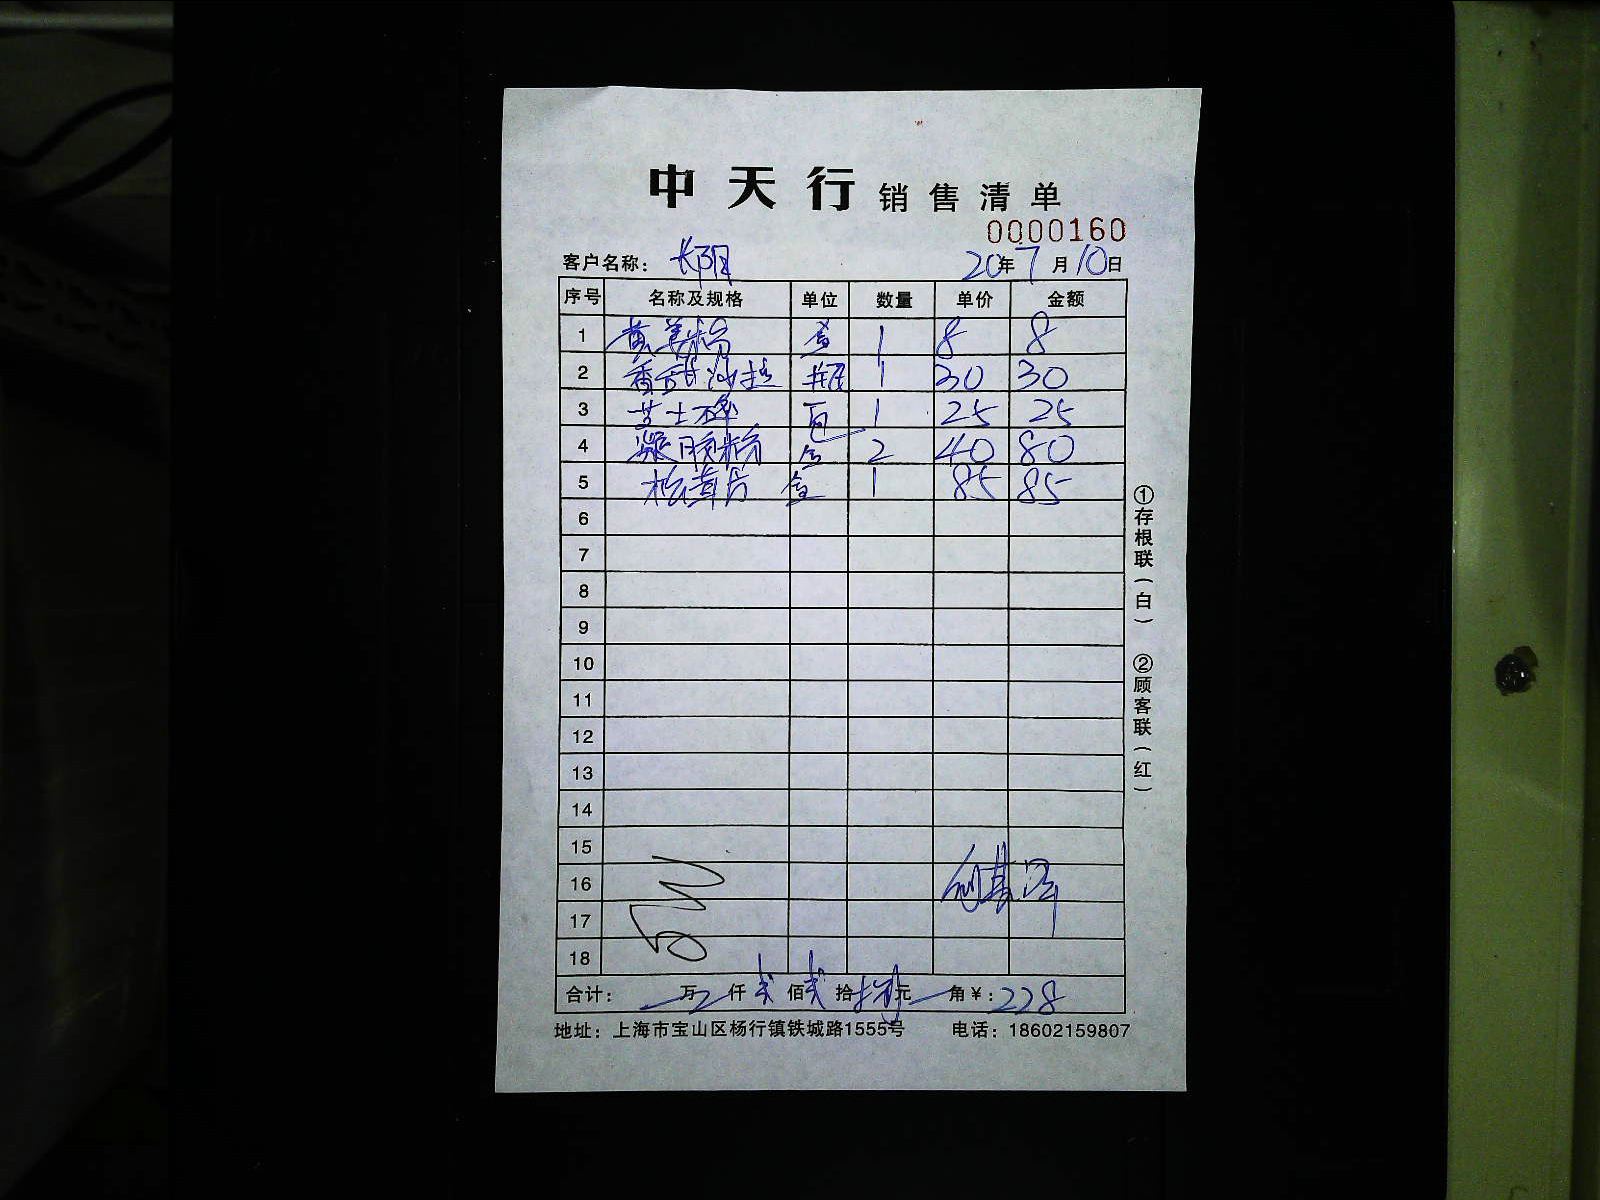 中天行 销售清单
0000160
客户名称: 长阳 20年7月10日
序号 名称及规格 单位 数量 单价 金额
1 黄姜粉 盒 1 8 8
2 香甜沙拉 瓶 1 30 30
3 芝士碎 包 1 25 25
4 凝胶粉 盒 2 40 80
5 松茸片 盒 1 85 85
6
7
8
9
10
11
12
13
14
15
16
17
18
合计: 万 仟 贰 佰 贰 拾 捌 元 角 ¥: 228
地址: 上海市宝山区杨行镇铁城路1555号 电话: 18602159807
①存根联(白) ②顾客联(红)